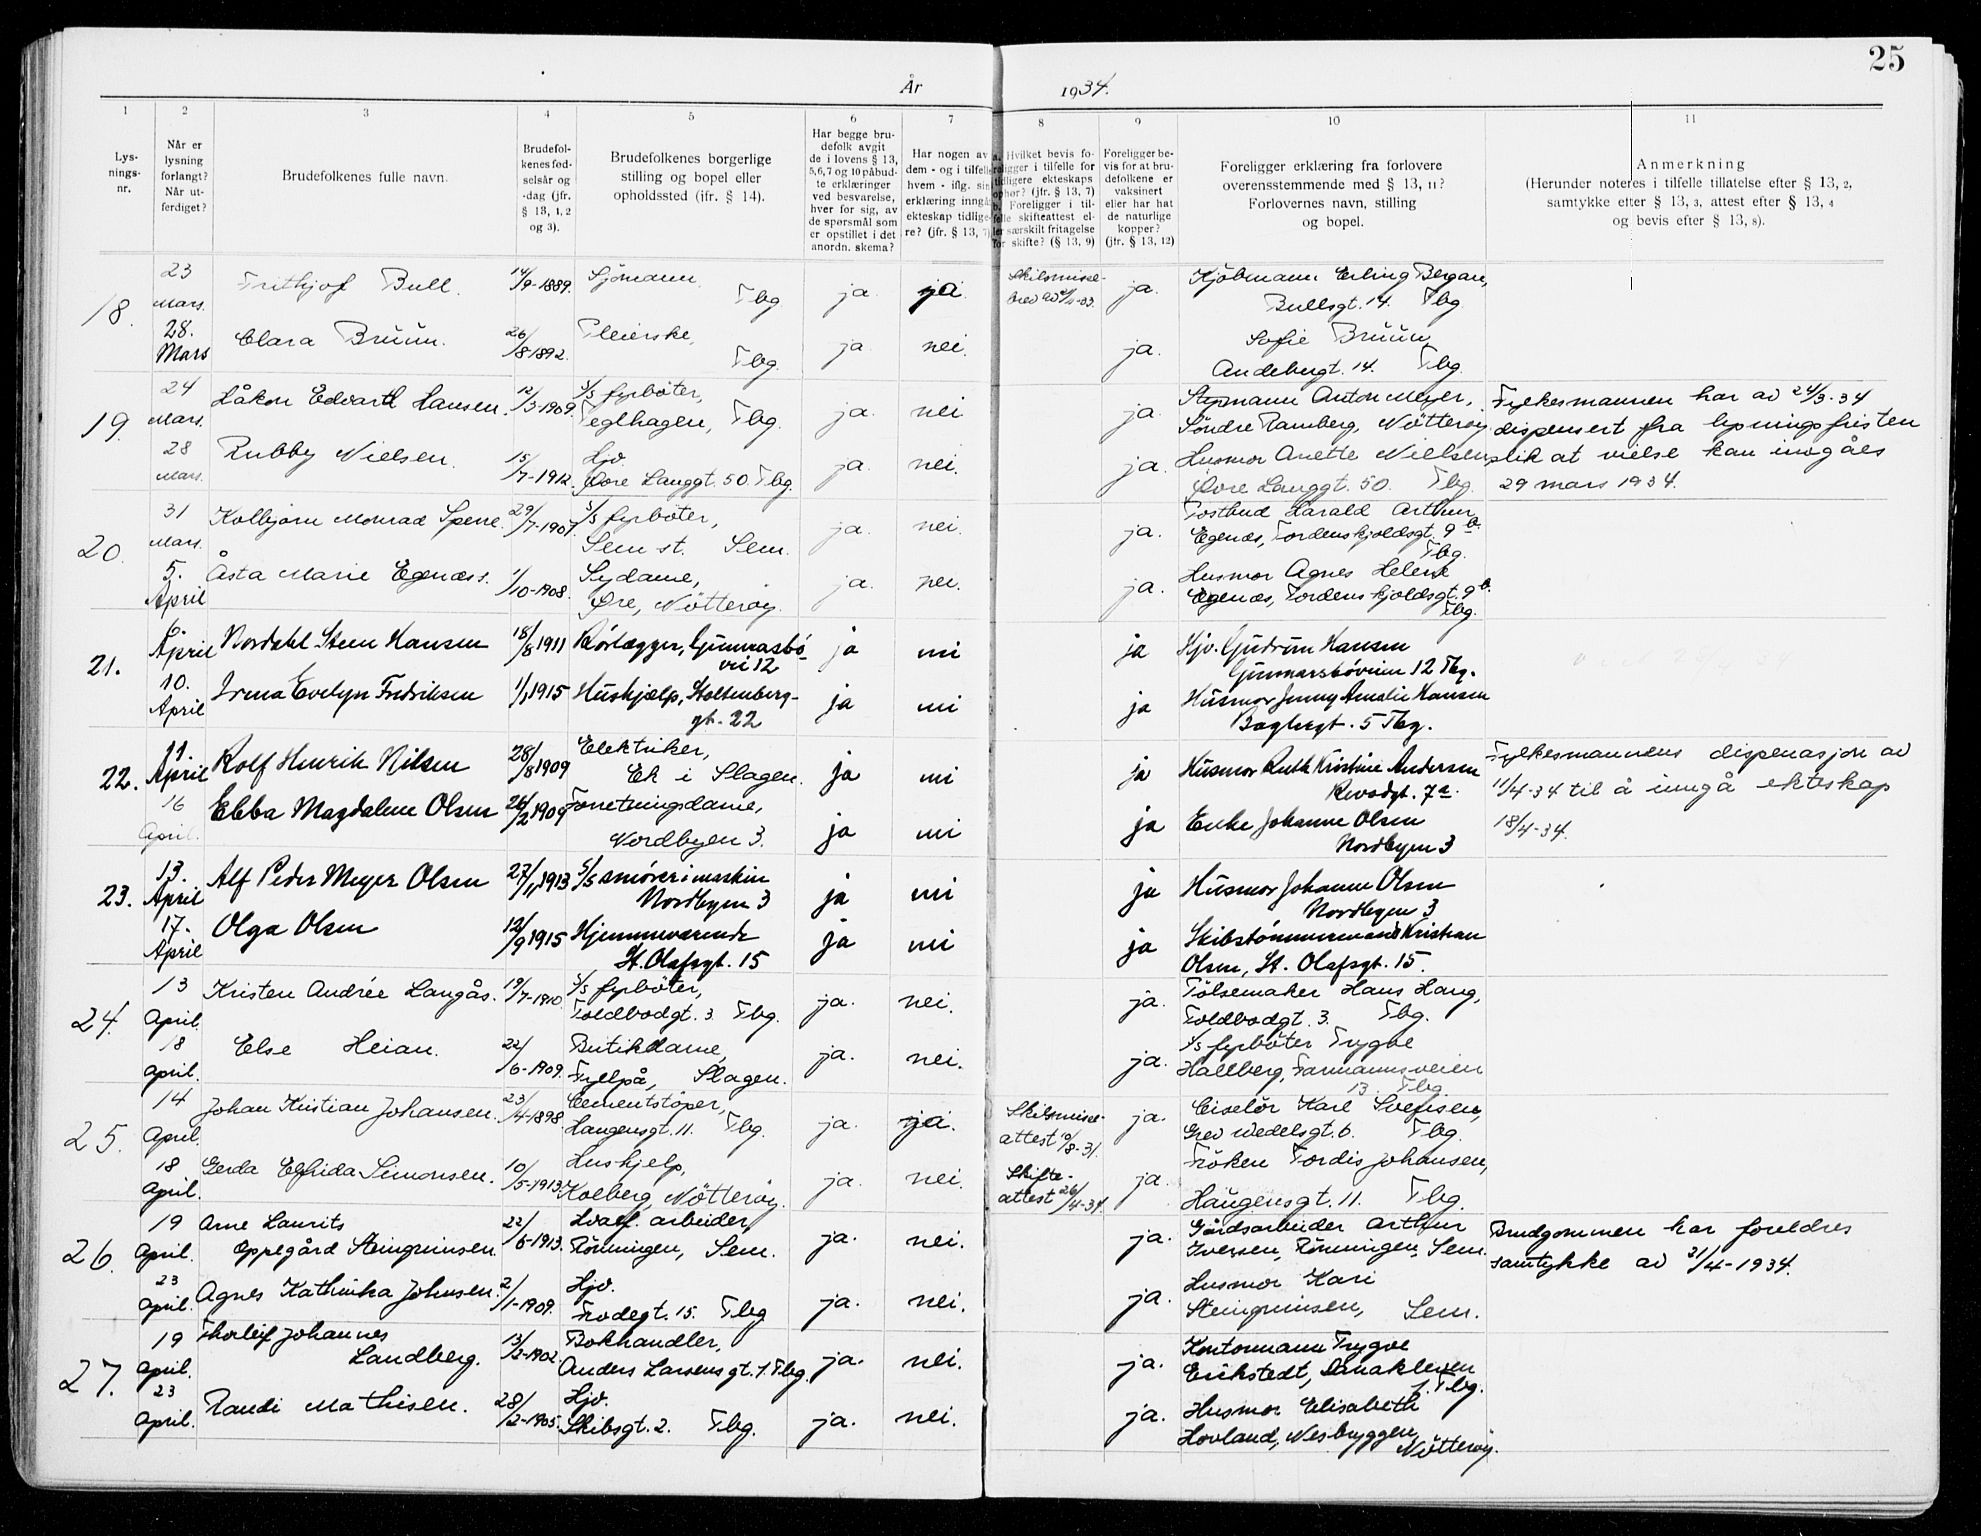 25
År 1934.
1 2 3 4 5 6 7 8 9 10 11
Lys-
nings-
nr.
Når er
lysning
forlangt?
Når ut-
ferdiget?
Brudefolkenes fulle navn.
Brudefol-
kenes fød-
selsår og
-dag (jfr.
§ 13, 1, 2
og 3).
Brudefolkenes borgerlige
stilling og bopel eller
opholdssted (jfr. § 14).
Har begge bru-
defolk avgit
de i lovens § 13,
5, 6, 7 og 10 påbud-
te erklæringer
ved besvarelse,
hver for sig, av
de spørsmål som
er opstillet i det
anordn. skema?
Har nogen av
dem - og i tilfelle
hvem - iflg. sin
erklæring inngå
ekteskap tidlige-
re? (jfr. § 13, 7)
a. Hvilket bevis fo-
religger i tilfelle for
tidligere ekteskaps
ophør? (jfr. § 13, 7)
b. Foreligger i til-
felle skifteattest el-
ler særskilt fritagelse
for skifte? (§ 13, 9)
Foreligger be-
vis for at bru-
defolkene er
vaksinert
eller har hat
de naturlige
kopper?
(jfr. § 13, 12)
Foreligger erklæring fra forlovere
overensstemmende med § 13, 11?
Forlovernes navn, stilling
og bopel.
Anmerkning
(Herunder noteres i tilfelle tillatelse efter § 13, 2,
samtykke efter § 13, 3, attest efter § 13, 4
og bevis efter § 13, 8).
18.
23 Mars. Frithjof Bull. 14/9-1889. Sjömann, Tbg. ja. ja. Skilsmisse-
brev av -33. ja. Kjöbmann Erling Bergan,
Bullsgt. 14. Tbg.
28. Mars Clara Bruun. 26/8 1892. Pleierske, Tbg. ja. nei. ja. Sofie Bruun,
Andebugt. 14. Tbg.
19.
24 Mars. Håkon Edvartd Hansen. 12/3-1909. s/s fyrböter,
Teglhagen, Tbg. ja. nei ja. Styrmann Anton Meyer,
Söndre Ramberg, Nötteröy.
28 Mars. Rubby Nielsen. 15/7-1912. Hjv.
Övre Langgt. 50. Tbg. ja. nei. ja. Husmor Anette Nielsen,
Övre Langgt. 50. Tbg.
Fylkesmannen har av 24/3-34
dispensert fra lysningsfristen
slik at vielse kan inngåes
29 mars 1934.
20.
31 Mars. Kolbjörn Monrad Sperre. 29/7-1907. s/s fyrböter,
Sem st. Sem. ja. nei. ja. Postbud Harald Arthur
Egenæs, Tordenskjoldsgt. 9 b.
Tbg.
5. April Åsta Marie Egenæss. 1/10-1908. Sydame,
Öre, Nötteröy. ja. nei. ja. Husmor Agnes Helene
Egenæs, Tordenskjoldsgt. 9 b.
Tbg.
21.
6. April Nordahl Steen Hansen 18/8 1911 Rörlægger, Gunnarsbö-
vei 12 ja nei ja Hjv. Gudrun Hansen
Gunnarsböveien 12 Tbg.
10. April Irma Evelyn Fredriksen 1/1 1915 Hushjælp, Stoltenberg-
gt. 22 ja nei ja Husmor Jenny Amalie Hansen
Baglergt. 5 Tbg.
22.
11. April Rolf Henrik Nilsen 28/8 1909 Elektriker,
Ek i Slagen. ja nei ja Husmor Ruth Kristine Andersen
7 a.
16 April. Ebba Magdalene Olsen 26/2 1909 Forretningsdame,
Nordbyen 3. ja nei ja Enke Johanne Olsen
Nordbyen 3
Fylkesmannens dispenasjon av
11/4-34 til å inngå ekteskap
18/4-34.
23.
13. April Alf Peder Meyer Olsen 27/11 1913 S/S smörer i maskin
Nordbyen 3 ja nei ja Husmor Johanne Olsen
Nordbyen 3
17. April Olga Olsen 12/9 1915 Hjemmeværende
St. Olafsgt. 15 ja nei ja Skibstömmermand Kristian
Olsen, St. Olafsgt. 15.
24.
13 April. Kristen Andrée Langås. 19/7-1910. s/s fyrböter,
Toldbodgt. 3. Tbg. ja. nei. ja. Pölsemaker Hans Haug,
Toldbodgt. 3. Tbg.
18 April. Else Heian. 22/6-1909. Butikdame,
Fyllpå, Slagen. ja. nei. ja. s/s fyrböter Trygve
Hallberg, Farmannsveien
13. Tbg
25.
14 April. Johan Kristian Johansen. 23/4-1898. Cementstöper,
Haugensgt. 11. Tbg. ja. ja. Skilsmisse-
attest 10/8-31. ja. Ciselör Karl Svensen,
Grev Wedelsgt. 6. Tbg.
18 April. Gerda Elfrida Simonsen. 10/5-1913. Hushjelp,
Kolberg, Nötteröy. ja. nei. Skifte-
attest 26/4-34. ja. Fröken Tordis Johansen,
Haugensgt. 11. Tbg.
26.
19 April. Arne Laurits
Oppegård Steingrimsen. 22/6-1913. Hvalf. arbeider
Rönningen, Sem. ja. nei. ja. Gårdsarbeider Arthur
Iversen, Rönningen, Sem.
23 April. Agnes Kathinka Johnsen. 2/1-1909. Hjv.
Frodegt. 15. Tbg ja. nei. ja. Husmor Kari
Steingrimsen, Sem.
Brudgommen har foreldres
samtykke av 21/4-1934.
27.
19 April. Thorleif Johannes
Landberg. 13/2-1902. Bokhandler,
Anders Larsens gt. 1. Tbg. ja. nei. ja. Kontormann Trygve
Erikstedt,
1. Tbg.
23 April. Randi Mathisen. 28/2-1905. Hjv.
Skibsgt. 2. Tbg. ja. nei. ja. Husmor Elisabeth
Hovland, Nesbryggen,
Nötteröy.